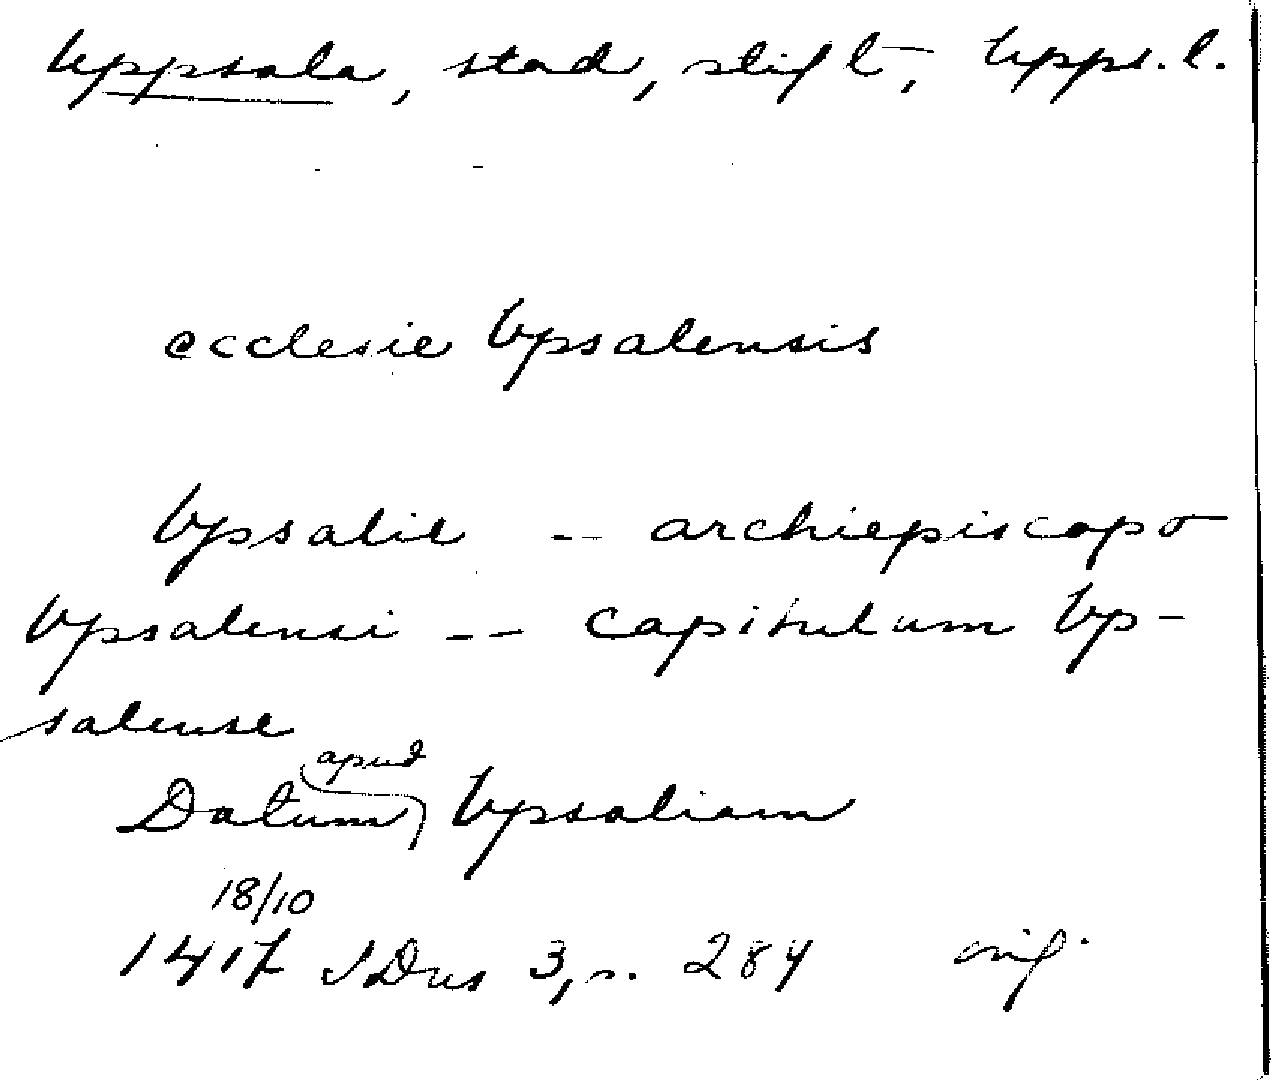 Uppsala, stad, stift, Upps. l.
ecclesie Vpsalensis
Vpsalie -- archiepiscopo
Vpsalensi -- capitulum Vp-
salense
apud
Datum Vpsaliam
18/10
1417 SDns 3, s. 284 orig.